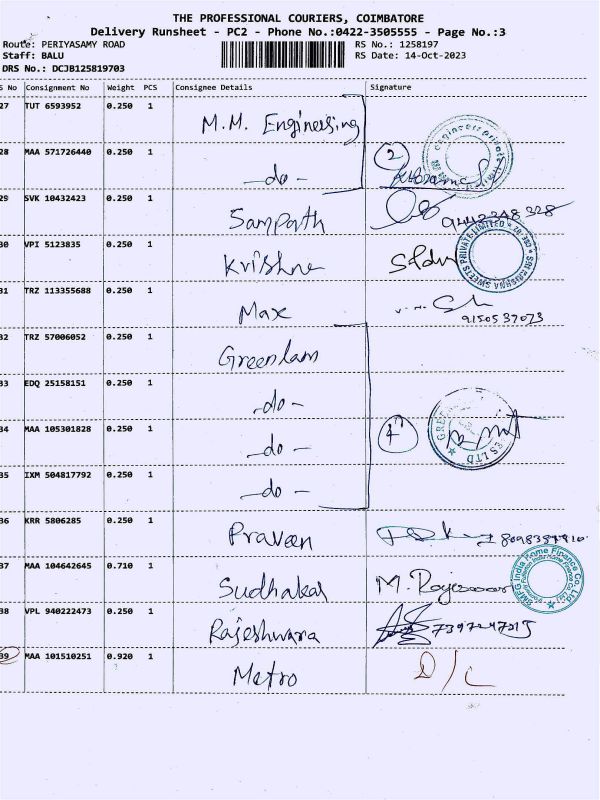 THE PROFESSIONAL COURIERS, COIMBATORE
Delivery Runsheet - PC2 - Phone No.:0422-3505555 - Page No.:3
Route: PERIYASAMY ROAD RS No.: 1258197
Staff: BALU RS Date: 14-Oct-2023
DRS No.: DCJB125819703
S No Consignment No Weight PCS Consignee Details Signature
27 TUT 6593952 0.250 1 M.M. Engineering
28 MAA 571726440 0.250 1 -do- 2
29 SVK 10432423 0.250 1 Sampath 9442348328
30 VPI 5123835 0.250 1 Krishna
SRI KRISHNA SWEETS PRIVATE LIMITED
31 TRZ 113355688 0.250 1 Max 9150537073
32 TRZ 57006052 0.250 1 Greenlam
33 EDQ 25158151 0.250 1 -do-
34 MAA 105301828 0.250 1 -do- 4
35 IXM 504817792 0.250 1 -do-
36 KRR 5806285 0.250 1 Praveen
37 MAA 104642645 0.710 1 Sudhakar M. Rajeswari
SMFG India Home Finance Co. Ltd
38 VPL 940222473 0.250 1 Rajeshwara
39 MAA 101510251 0.920 1 Metro D/L